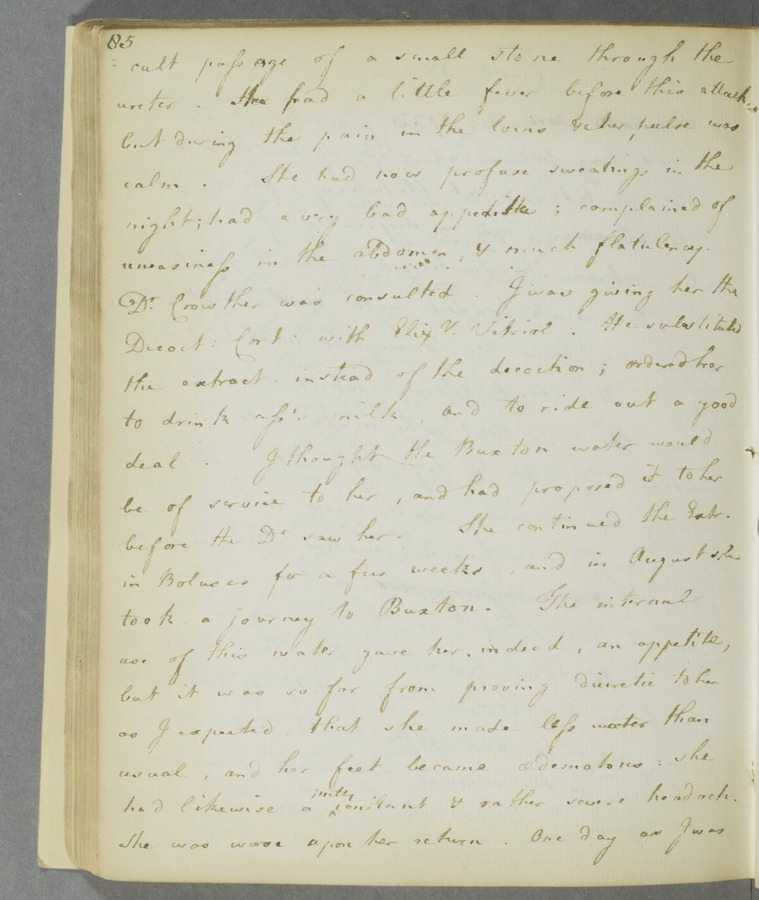 85
= cult passage of a small stone through the
ureter. She had a little fever before this attack,
but during the pain in the loins &c her pulse was
calm. She had now profuse sweatings in the
night; had a very bad appetite; complained of
uneasiness in the abdomen, & much flatulency.
Dr. Crowther was consulted. I was giving her the
Decoct: Cort: with Elix V. Vitriol. He substituted
the extract instead of the decoction; ordered her
to drink ass's milk, and to ride out a good
deal. I thought the Buxton water would
be of service to her, and had proposed it to her
before the Dr saw her. She continued the Extr.
in Boluses for a few weeks, and in August she
took a journey to Buxton. The internal
use of this water gave her, indeed, an appetite,
but it was so far from proving diuretic to her
as I expected that she made less water than
usual, and her feet became œdematous: she
had likewise a constant & rather severe headach.
She was worse upon her return. One day as I was